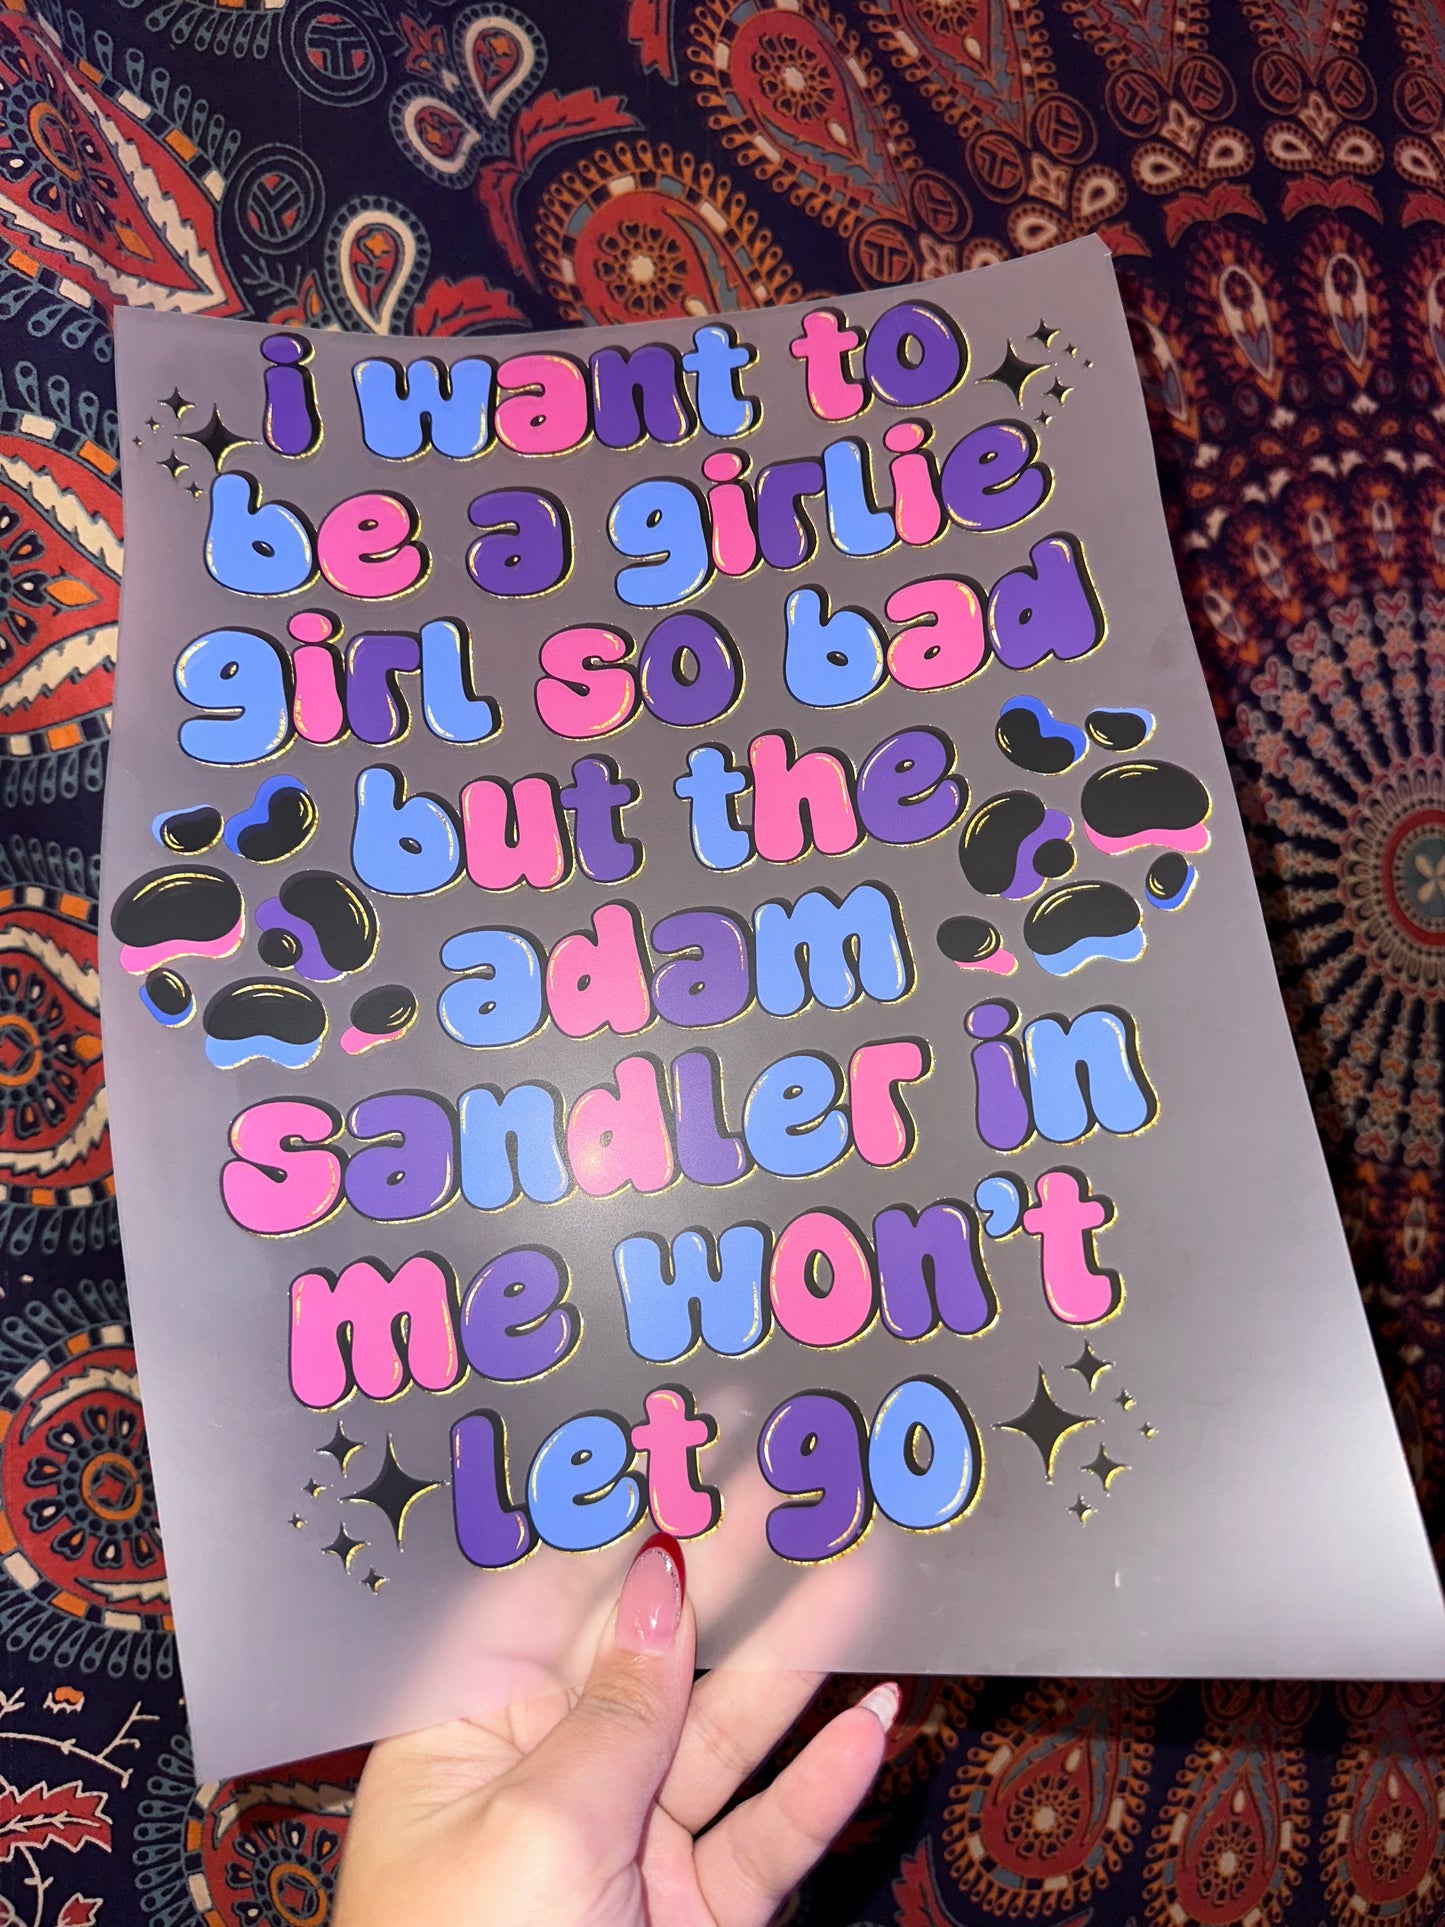 i want to
be a girlie
girl so bad
but the
adam
sandler in
me won't
let go